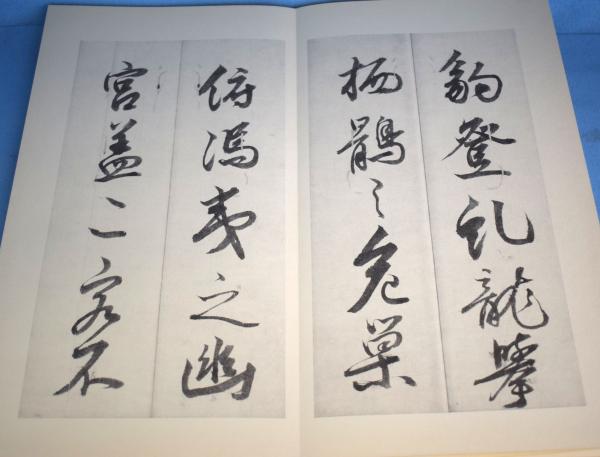 豹登虬龍攀
栖鶻之危巢
俯馮夷之幽
宮盖二客不